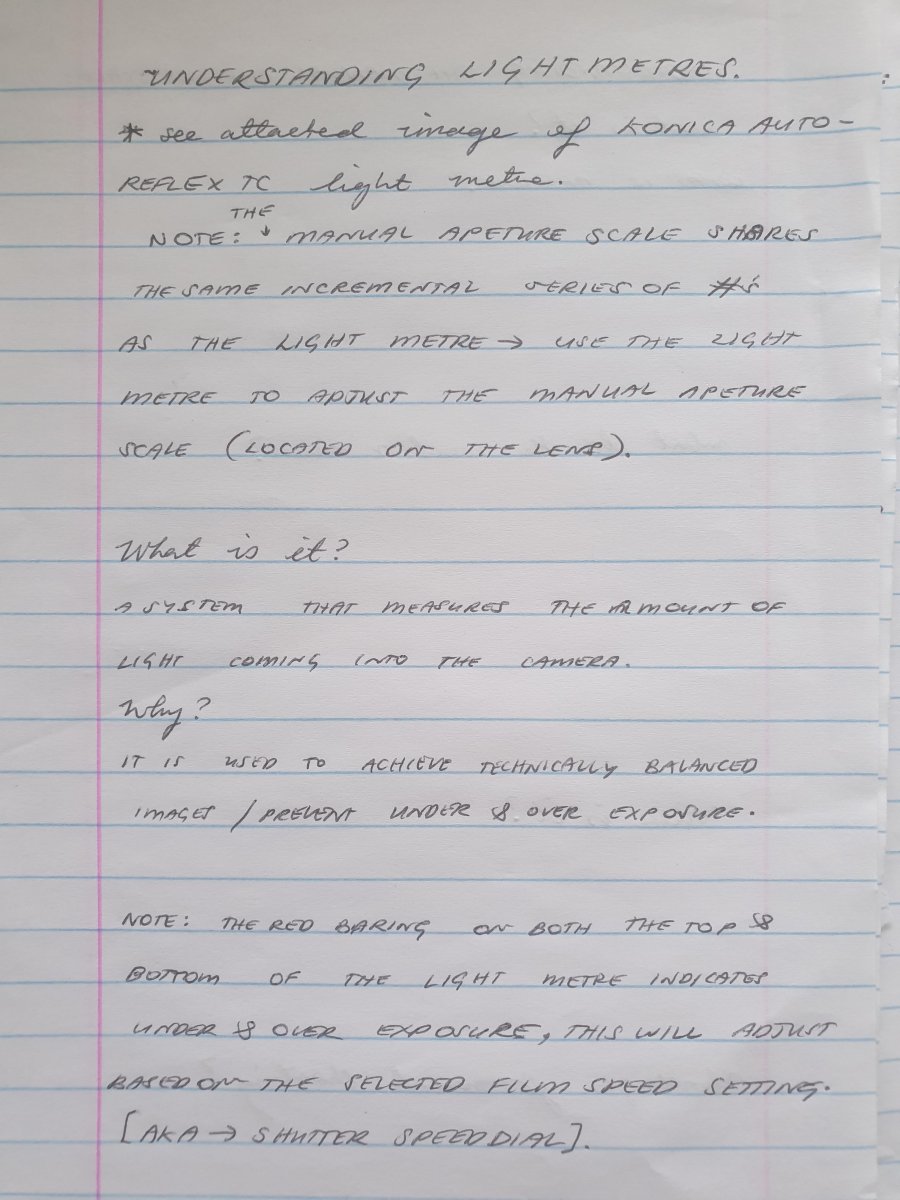 UNDERSTANDING LIGHT METRES.
* see attacted image of KONICA AUTO-
REFLEX TC light metre.
THE
NOTE: ↓ MANUAL APETURE SCALE SHARES
THE SAME INCREMENTAL SERIES OF #'s
AS THE LIGHT METRE → USE THE LIGHT
METRE TO ADJUST THE MANUAL APETURE
SCALE (LOCATED ON THE LENS).
What is it?
A SYSTEM THAT MEASURES THE AMOUNT OF
LIGHT COMING INTO THE CAMERA.
Why?
IT IS USED TO ACHIEVE TECHNICALLY BALANCED
IMAGES / PREVENT UNDER & OVER EXPOSURE.
NOTE: THE RED BARING ON BOTH THE TOP &
BOTTOM OF THE LIGHT METRE INDICATES
UNDER & OVER EXPOSURE, THIS WILL ADJUST
BASED ON THE SELECTED FILM SPEED SETTING.
[AKA → SHUTTER SPEED DIAL].